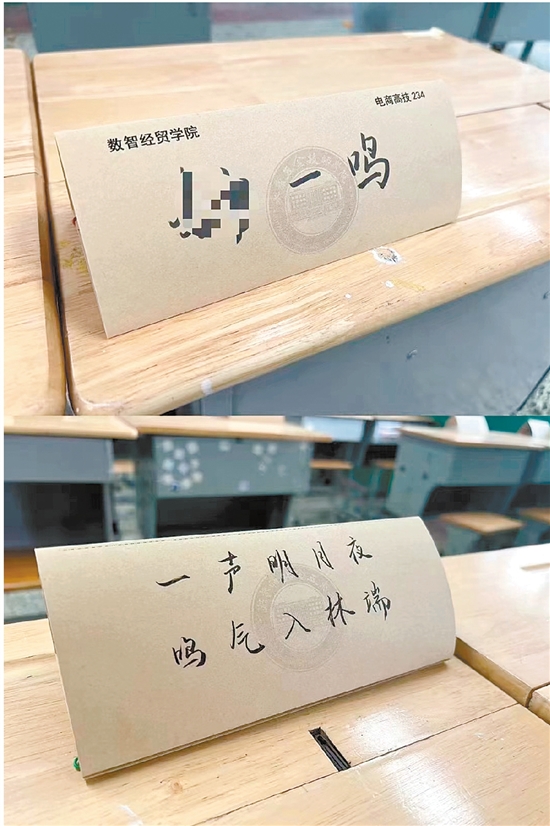 数智经贸学院
电商高技234
一鸣
一声明月夜
鸣气入林端